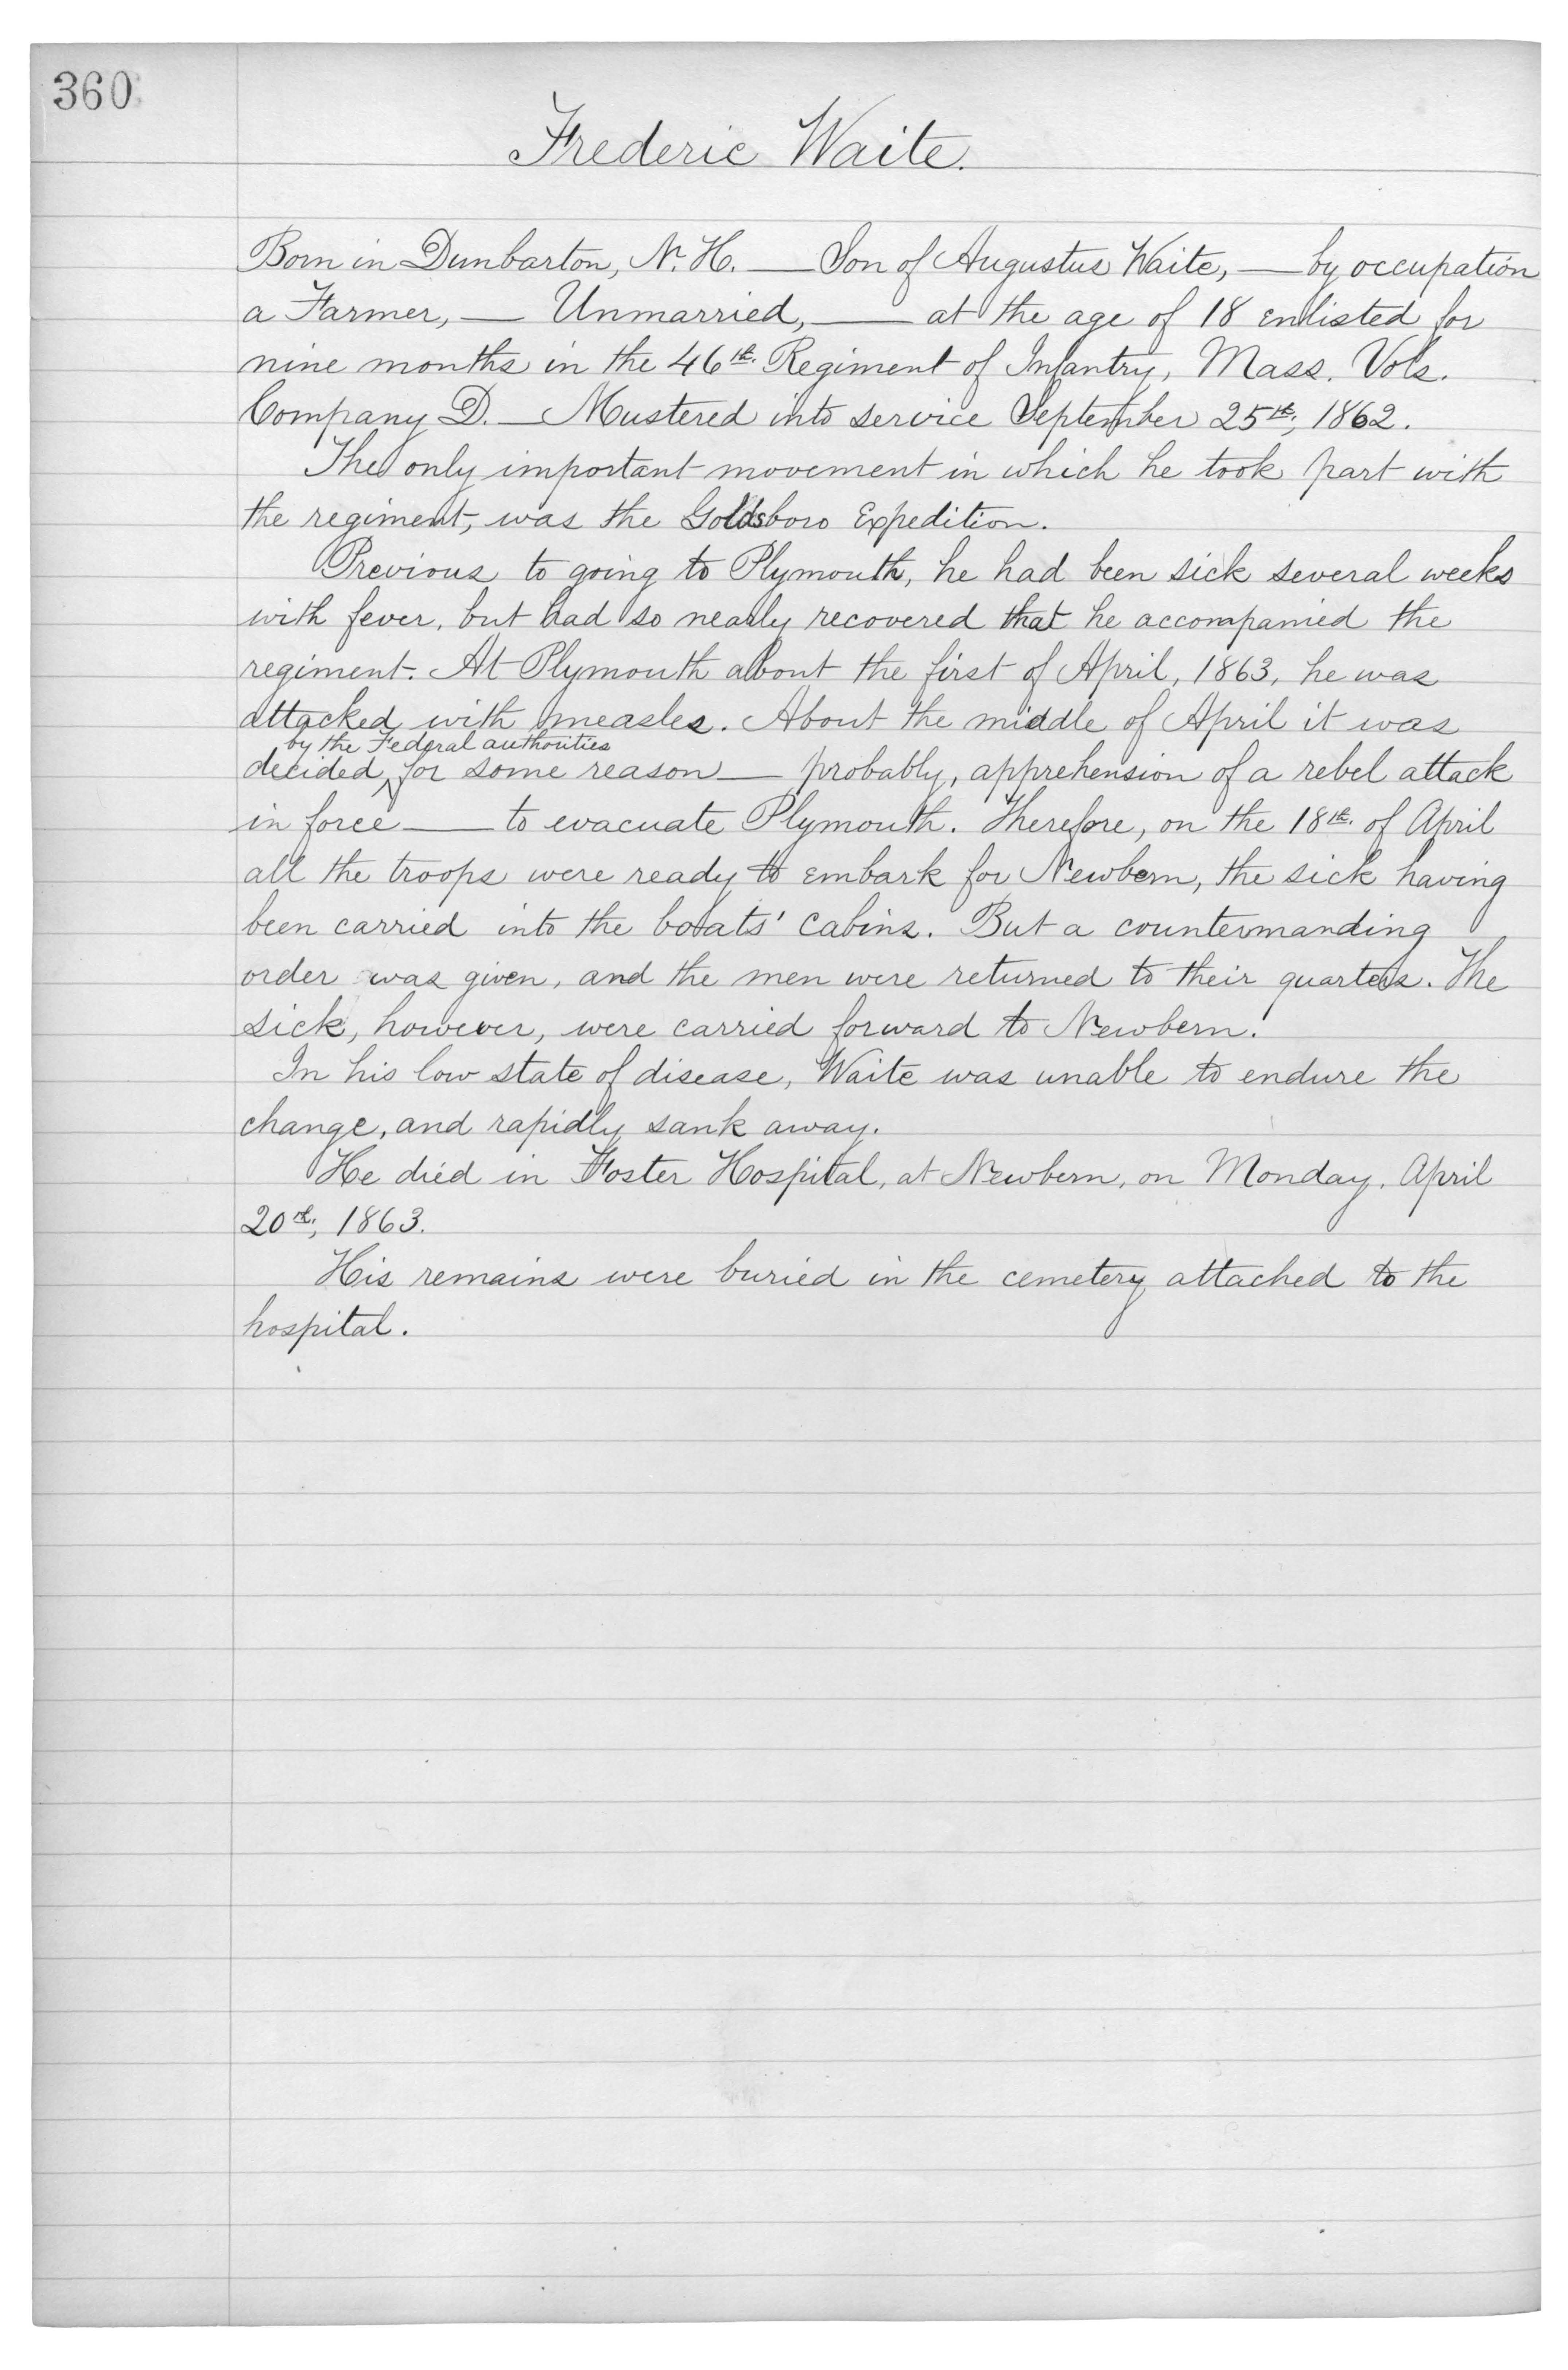 360
Frederic Waite.
Born in Dunbarton, N. H. — Son of Augustus Waite, — by occupation
a Farmer, — Unmarried, — at the age of 18 enlisted for
nine months in the 46th. Regiment of Infantry, Mass. Vols.
Company D. — Mustered into service September 25th, 1862.
The only important movement in which he took part with
the regiment, was the Goldsboro Expedition.
Previous to going to Plymouth, he had been sick several weeks
with fever, but had so nearly recovered that he accompanied the
regiment. At Plymouth about the first of April, 1863, he was
attacked with measles. About the middle of April it was
by the Federal authorities
decided ^ for some reason — probably, apprehension of a rebel attack
in force — to evacuate Plymouth. Therefore, on the 18th. of April
all the troops were ready to embark for Newbern, the sick having
been carried into the boats' cabins. But a countermanding
order was given, and the men were returned to their quarters. The
sick, however, were carried forward to Newbern.
In his low state of disease, Waite was unable to endure the
change, and rapidly sank away.
He died in Foster Hospital, at Newbern, on Monday, April
20th, 1863.
His remains were buried in the cemetery attached to the
hospital.